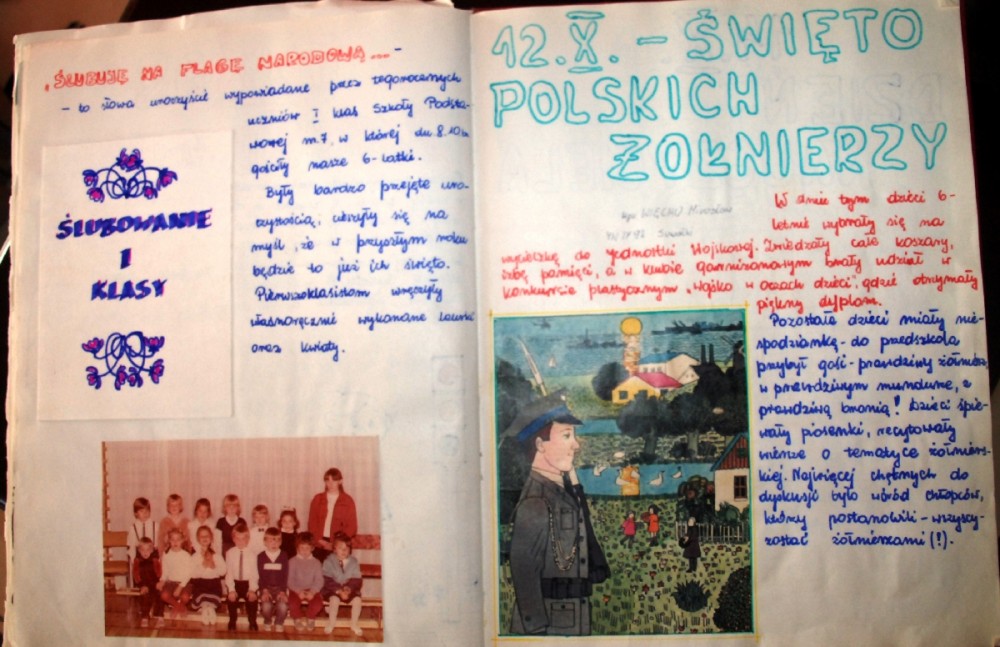 „ŚLUBUJĘ NA FLAGĘ NARODOWĄ...”-
- to słowa uroczyście wypowiadane przez tegorocznych
uczniów I klas Szkoły Podsta-
wowej nr.7, w której dn. 8.10 br.
gościły nasze 6-latki.
Były bardzo przejęte uro-
czystością, cieszyły się na
myśl, że w przyszłym roku
będzie to już ich święto.
Pierwszoklasistom wręczyły
własnoręcznie wykonane laurki
oraz kwiaty.
ŚLUBOWANIE
I
KLASY
12.X. - ŚWIĘTO
POLSKICH
ŻOŁNIERZY
WIĘCHU Mirosław
W dniu tym dzieci 6-
letnie wybrały się na
wycieczkę do Jednostki Wojskowej. Zwiedzały całe koszary,
izbę pamięci, a w klubie garnizonowym brały udział w
konkursie plastycznym „Wojsko w oczach dzieci”, gdzie otrzymały
piękny dyplom.
Pozostałe dzieci miały nie-
spodziankę - do przedszkola
przybył gość - prawdziwy żółnierz,
w prawdziwym mundurze, z
prawdziwą bronią! Dzieci śpie-
wały piosenki, recytowały
wiersze o tematyce żołniers-
kiej. Najwięcej chętnych do
dyskusji było wśród chłopców,
którzy postanowili - wszyscy -
zostać żółnierzami(!).